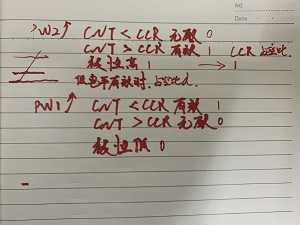 No
Date
PWM2↑ CNT < CCR 无效 0
CNT > CCR 有效 1 CCR 占空比
极性高 1 → 1
低电平有效时,占空比
PWM1↑ CNT < CCR 有效 1
CNT > CCR 无效 0
极性低 0